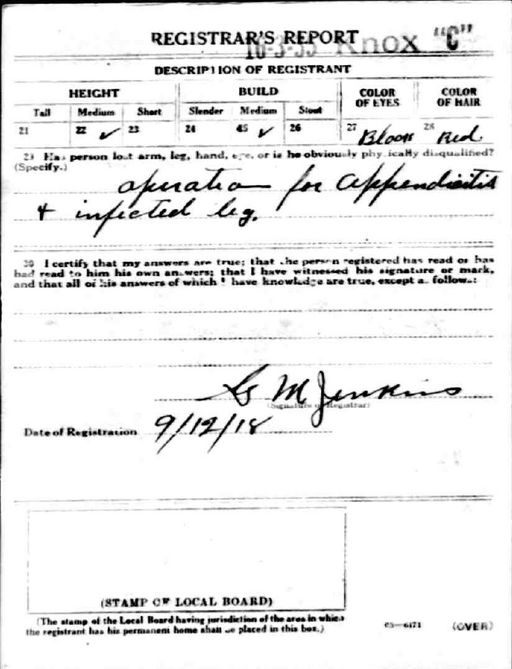 REGISTRAR'S REPORT
16-3-35 Knox "C"
DESCRIPTION OF REGISTRANT
HEIGHT BUILD COLOR OF EYES COLOR OF HAIR
Tall Medium Short Slender Medium Stout
21 22 ✓ 23 24 25 ✓ 26 27 28 Red
29 Has person lost arm, leg, hand, eye, or is he obviously physically disqualified?
(Specify.)
operation for appendicitis
& infected leg.
30 I certify that my answers are true; that the person registered has read or has
had read to him his own answers; that I have witnessed his signature or mark,
and that all of his answers of which I have knowledge are true, except as follows:
M Jenkins
(Signature of Registrar)
Date of Registration 9/12/18
(STAMP OF LOCAL BOARD)
(The stamp of the Local Board having jurisdiction of the area in which
the registrant has his permanent home shall be placed in this box.)
03—6171 (OVER)